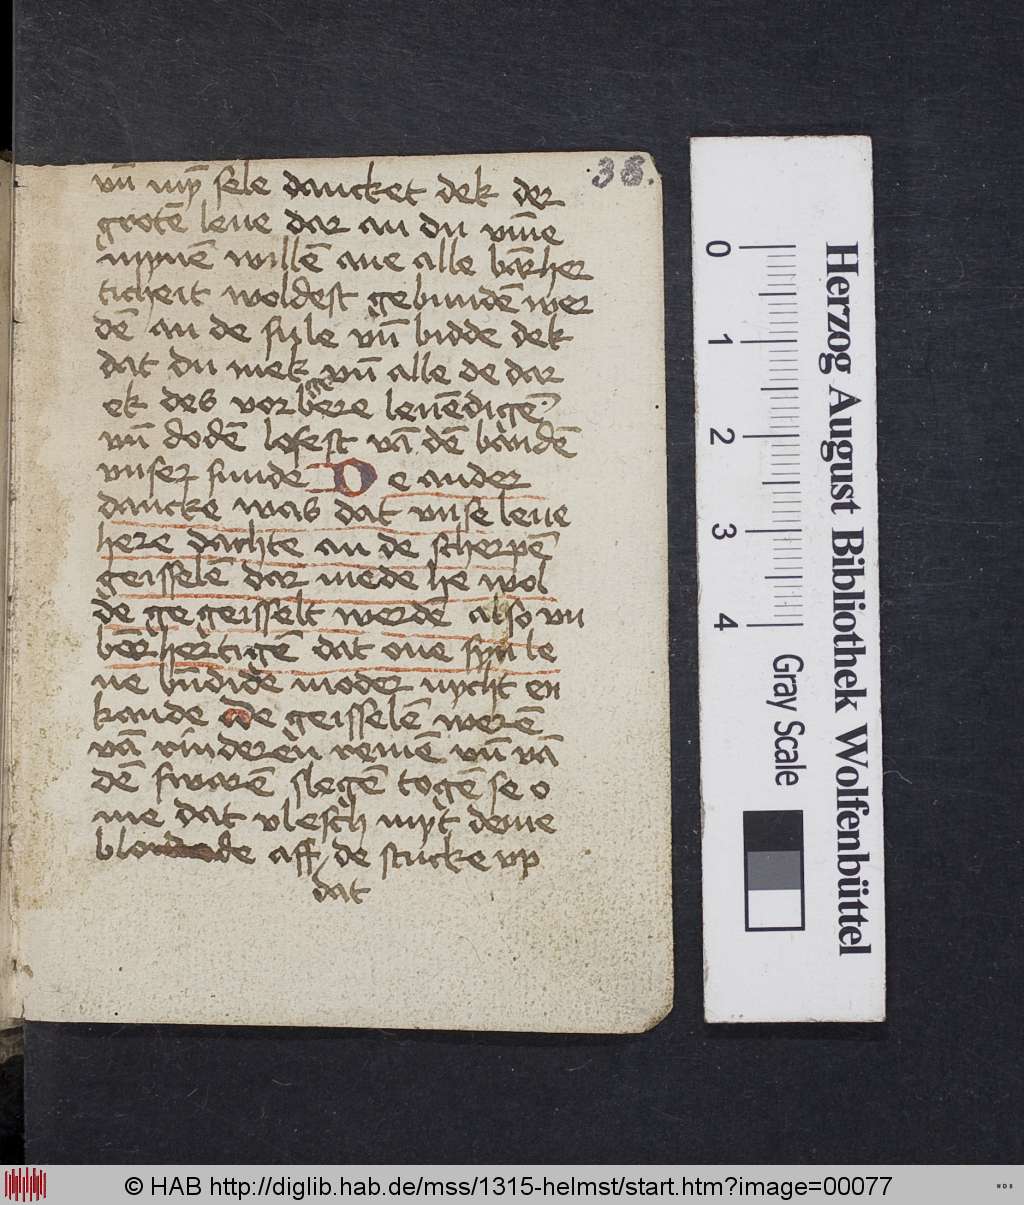 38.
vn̄ mȳ sele dancket dek der
grotē leue dar an du vm̄e
mynē willē ane alle bārher
ticheit woldest gebundē wer
dē an de sule vn̄ bidde dek
dat du mek vn̄ alle de dar
ek des vor bogere leuēdigē
vn̄ dodē losest vā dē bandē
vnser sunde De ander
dancke was dat vnse leue
here dachte an de scherpē
geisselē dar mede he wol
de gegeisselt werdē also vn
bērhertigē dat one syn le
ue bn̄didē moder nycht en
kande de geisselē werē
vā rinderen remē vn̄ vā
dē swarē slegē togē se o
me dat vlesch myt deme
blode aff de stucke vp
dat
Herzog August Bibliothek Wolfenbüttel
0 1 2 3 4
Gray Scale
© HAB http://diglib.hab.de/mss/1315-helmst/start.htm?image=00077